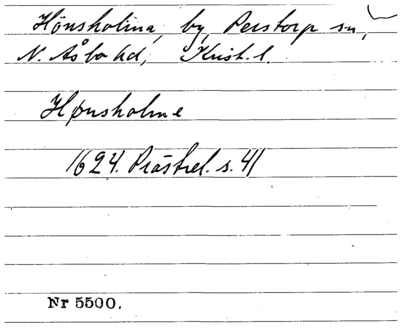 Hönsholma, by, Perstorp sn,
N. Åsbo hd, Krist. l.
Hønsholme
1624. Prästrel. s. 41
Nr 5500.